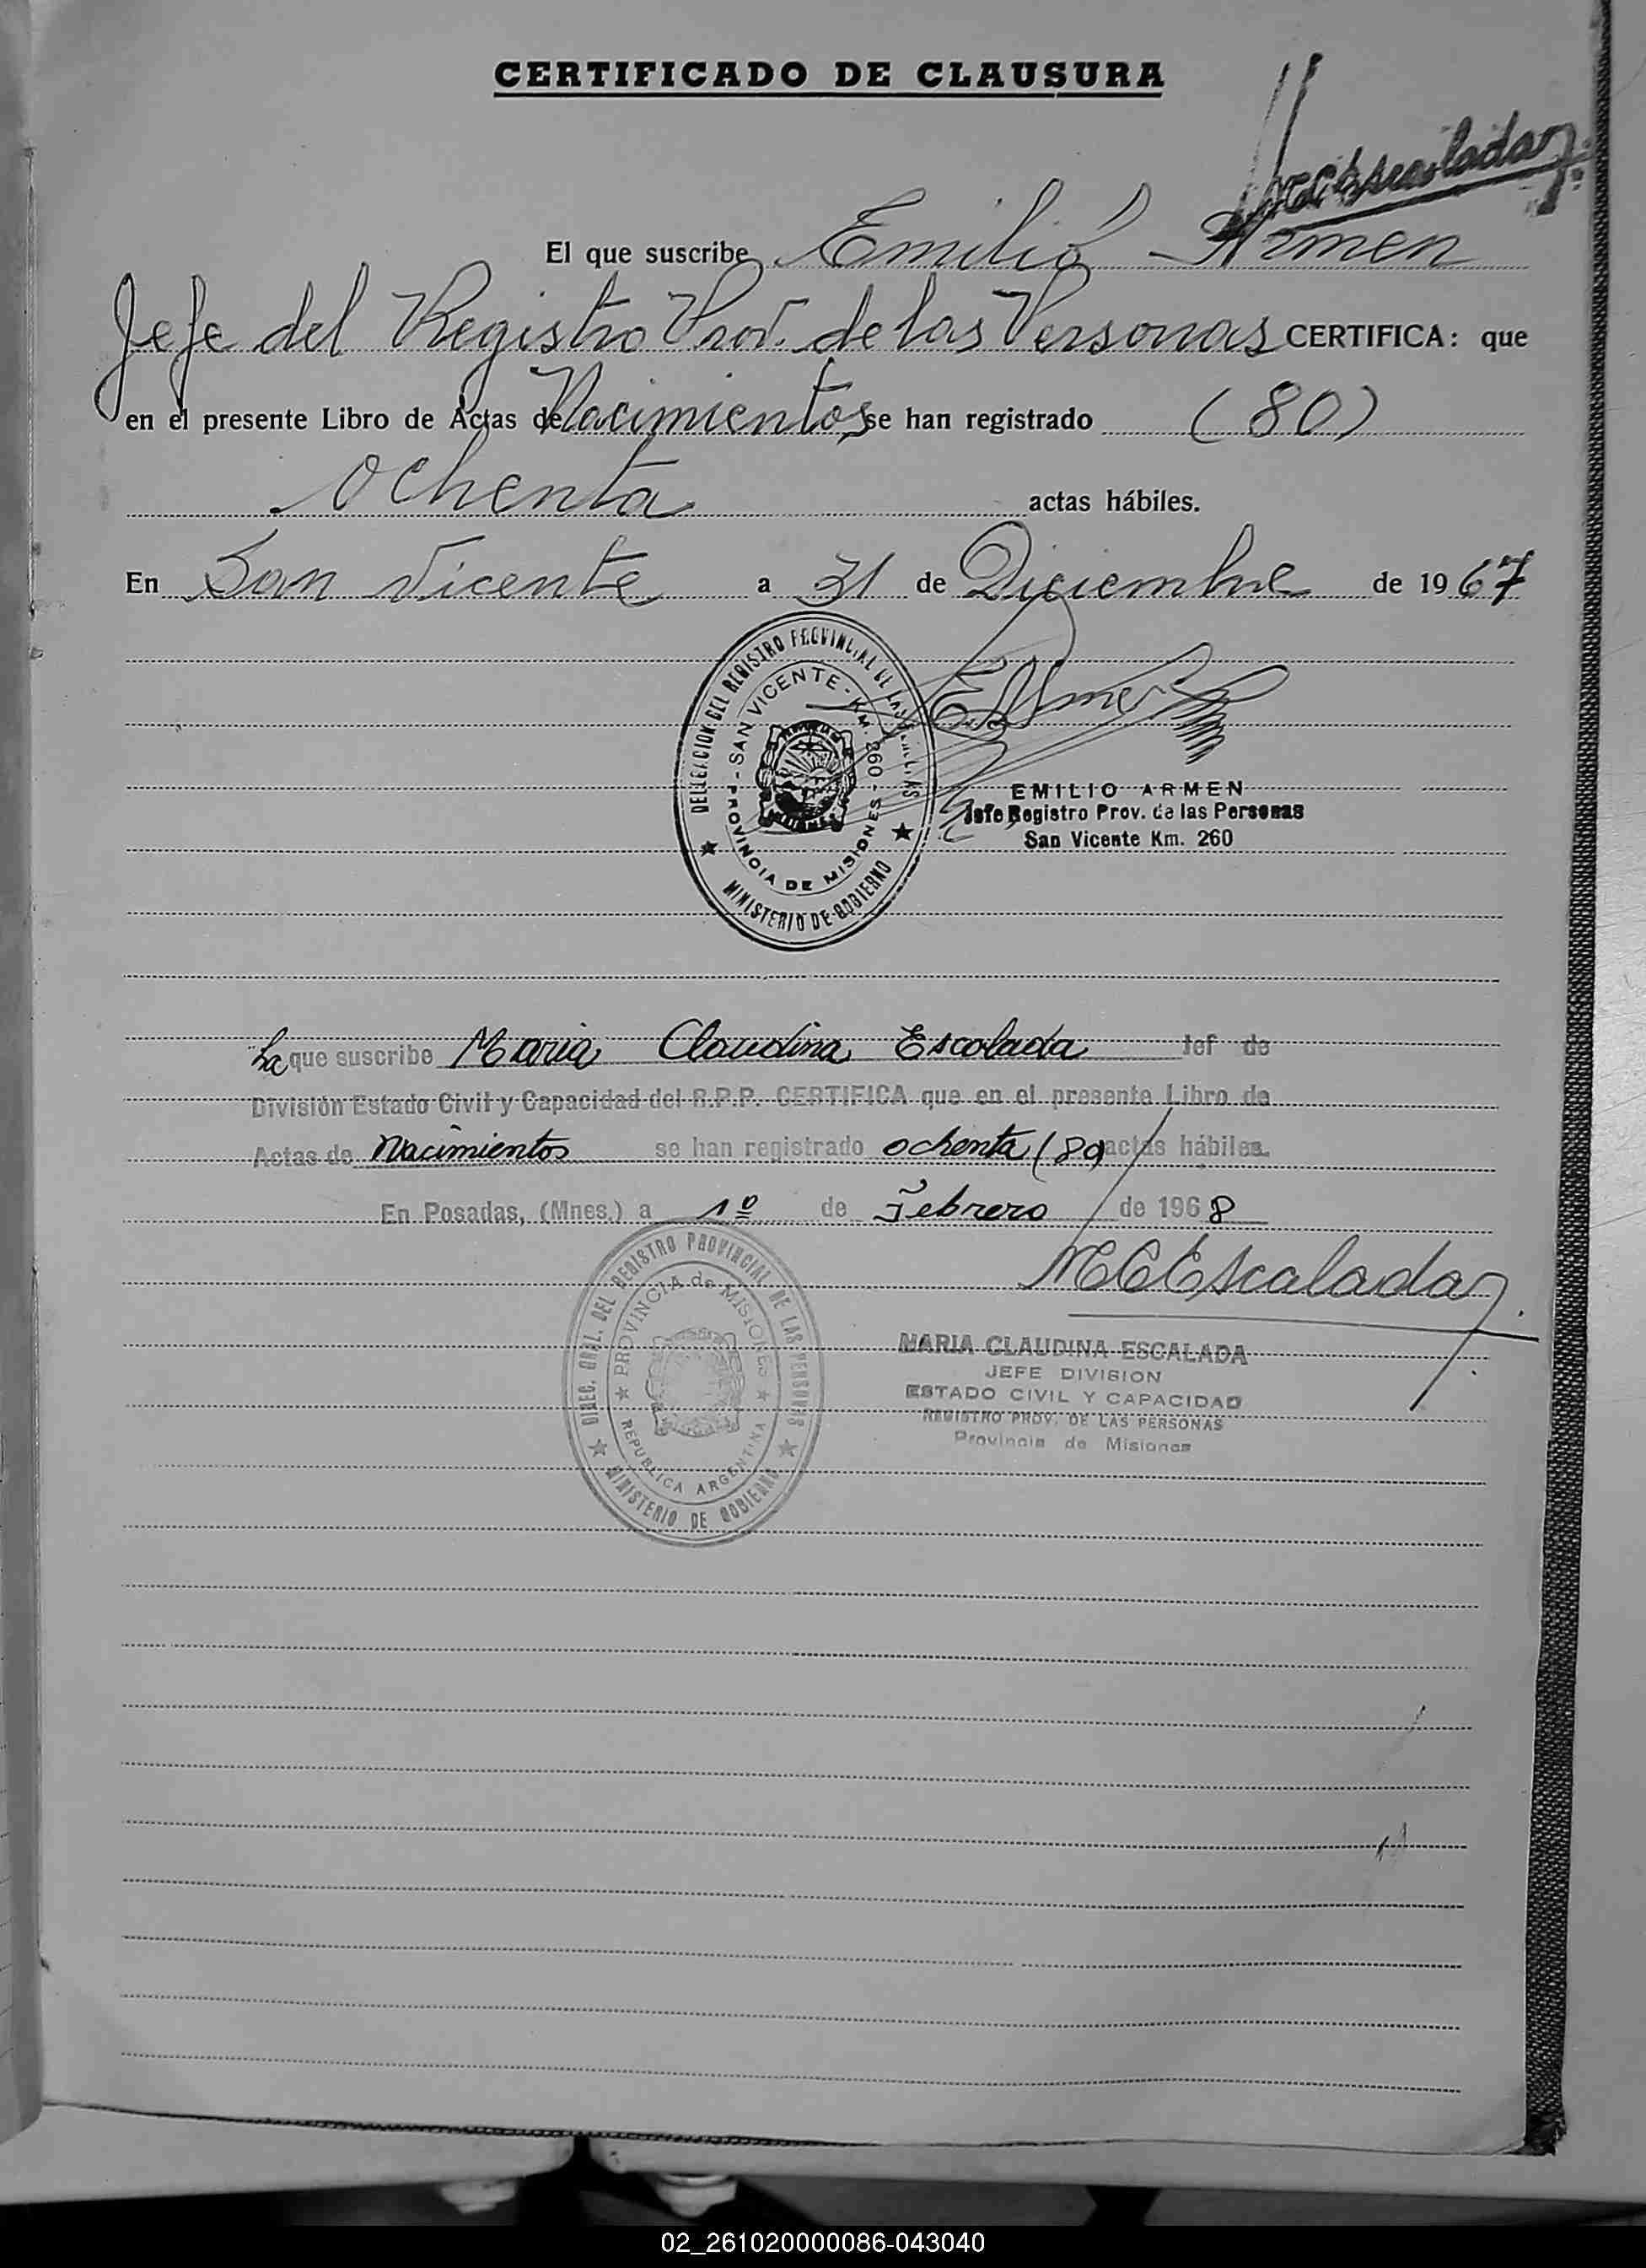 CERTIFICADO DE CLAUSURA
MCEscalada
El que suscribe Emilio Armen
Jefe del Registro Prov. de las Personas CERTIFICA: que
en el presente Libro de Actas de Nacimientos se han registrado (80)
ochenta actas hábiles.
En San Vicente a 31 de Diciembre de 1967
DELEGACION DEL REGISTRO PROVINCIAL DE LAS PERSONAS
SAN VICENTE - KM. 260 - PROVINCIA DE MISIONES -
MINISTERIO DE GOBIERNO
EArmen
EMILIO ARMEN
Jefe Registro Prov. de las Personas
San Vicente Km. 260
La que suscribe Maria Claudina Escalada Jef de
División Estado Civil y Capacidad del R.P.P. CERTIFICA que en el presente Libro de
Actas de Nacimientos se han registrado ochenta (80) actas hábiles.
En Posadas, (Mnes.) a 1º de Febrero de 1968
MCEscalada
DIREC. GRAL. DEL REGISTRO PROVINCIAL DE LAS PERSONAS
PROVINCIA de MISIONES
REPUBLICA ARGENTINA
MINISTERIO DE GOBIERNO
MARIA CLAUDINA ESCALADA
JEFE DIVISION
ESTADO CIVIL Y CAPACIDAD
REGISTRO PROV. DE LAS PERSONAS
Provincia de Misiones
02_261020000086-043040